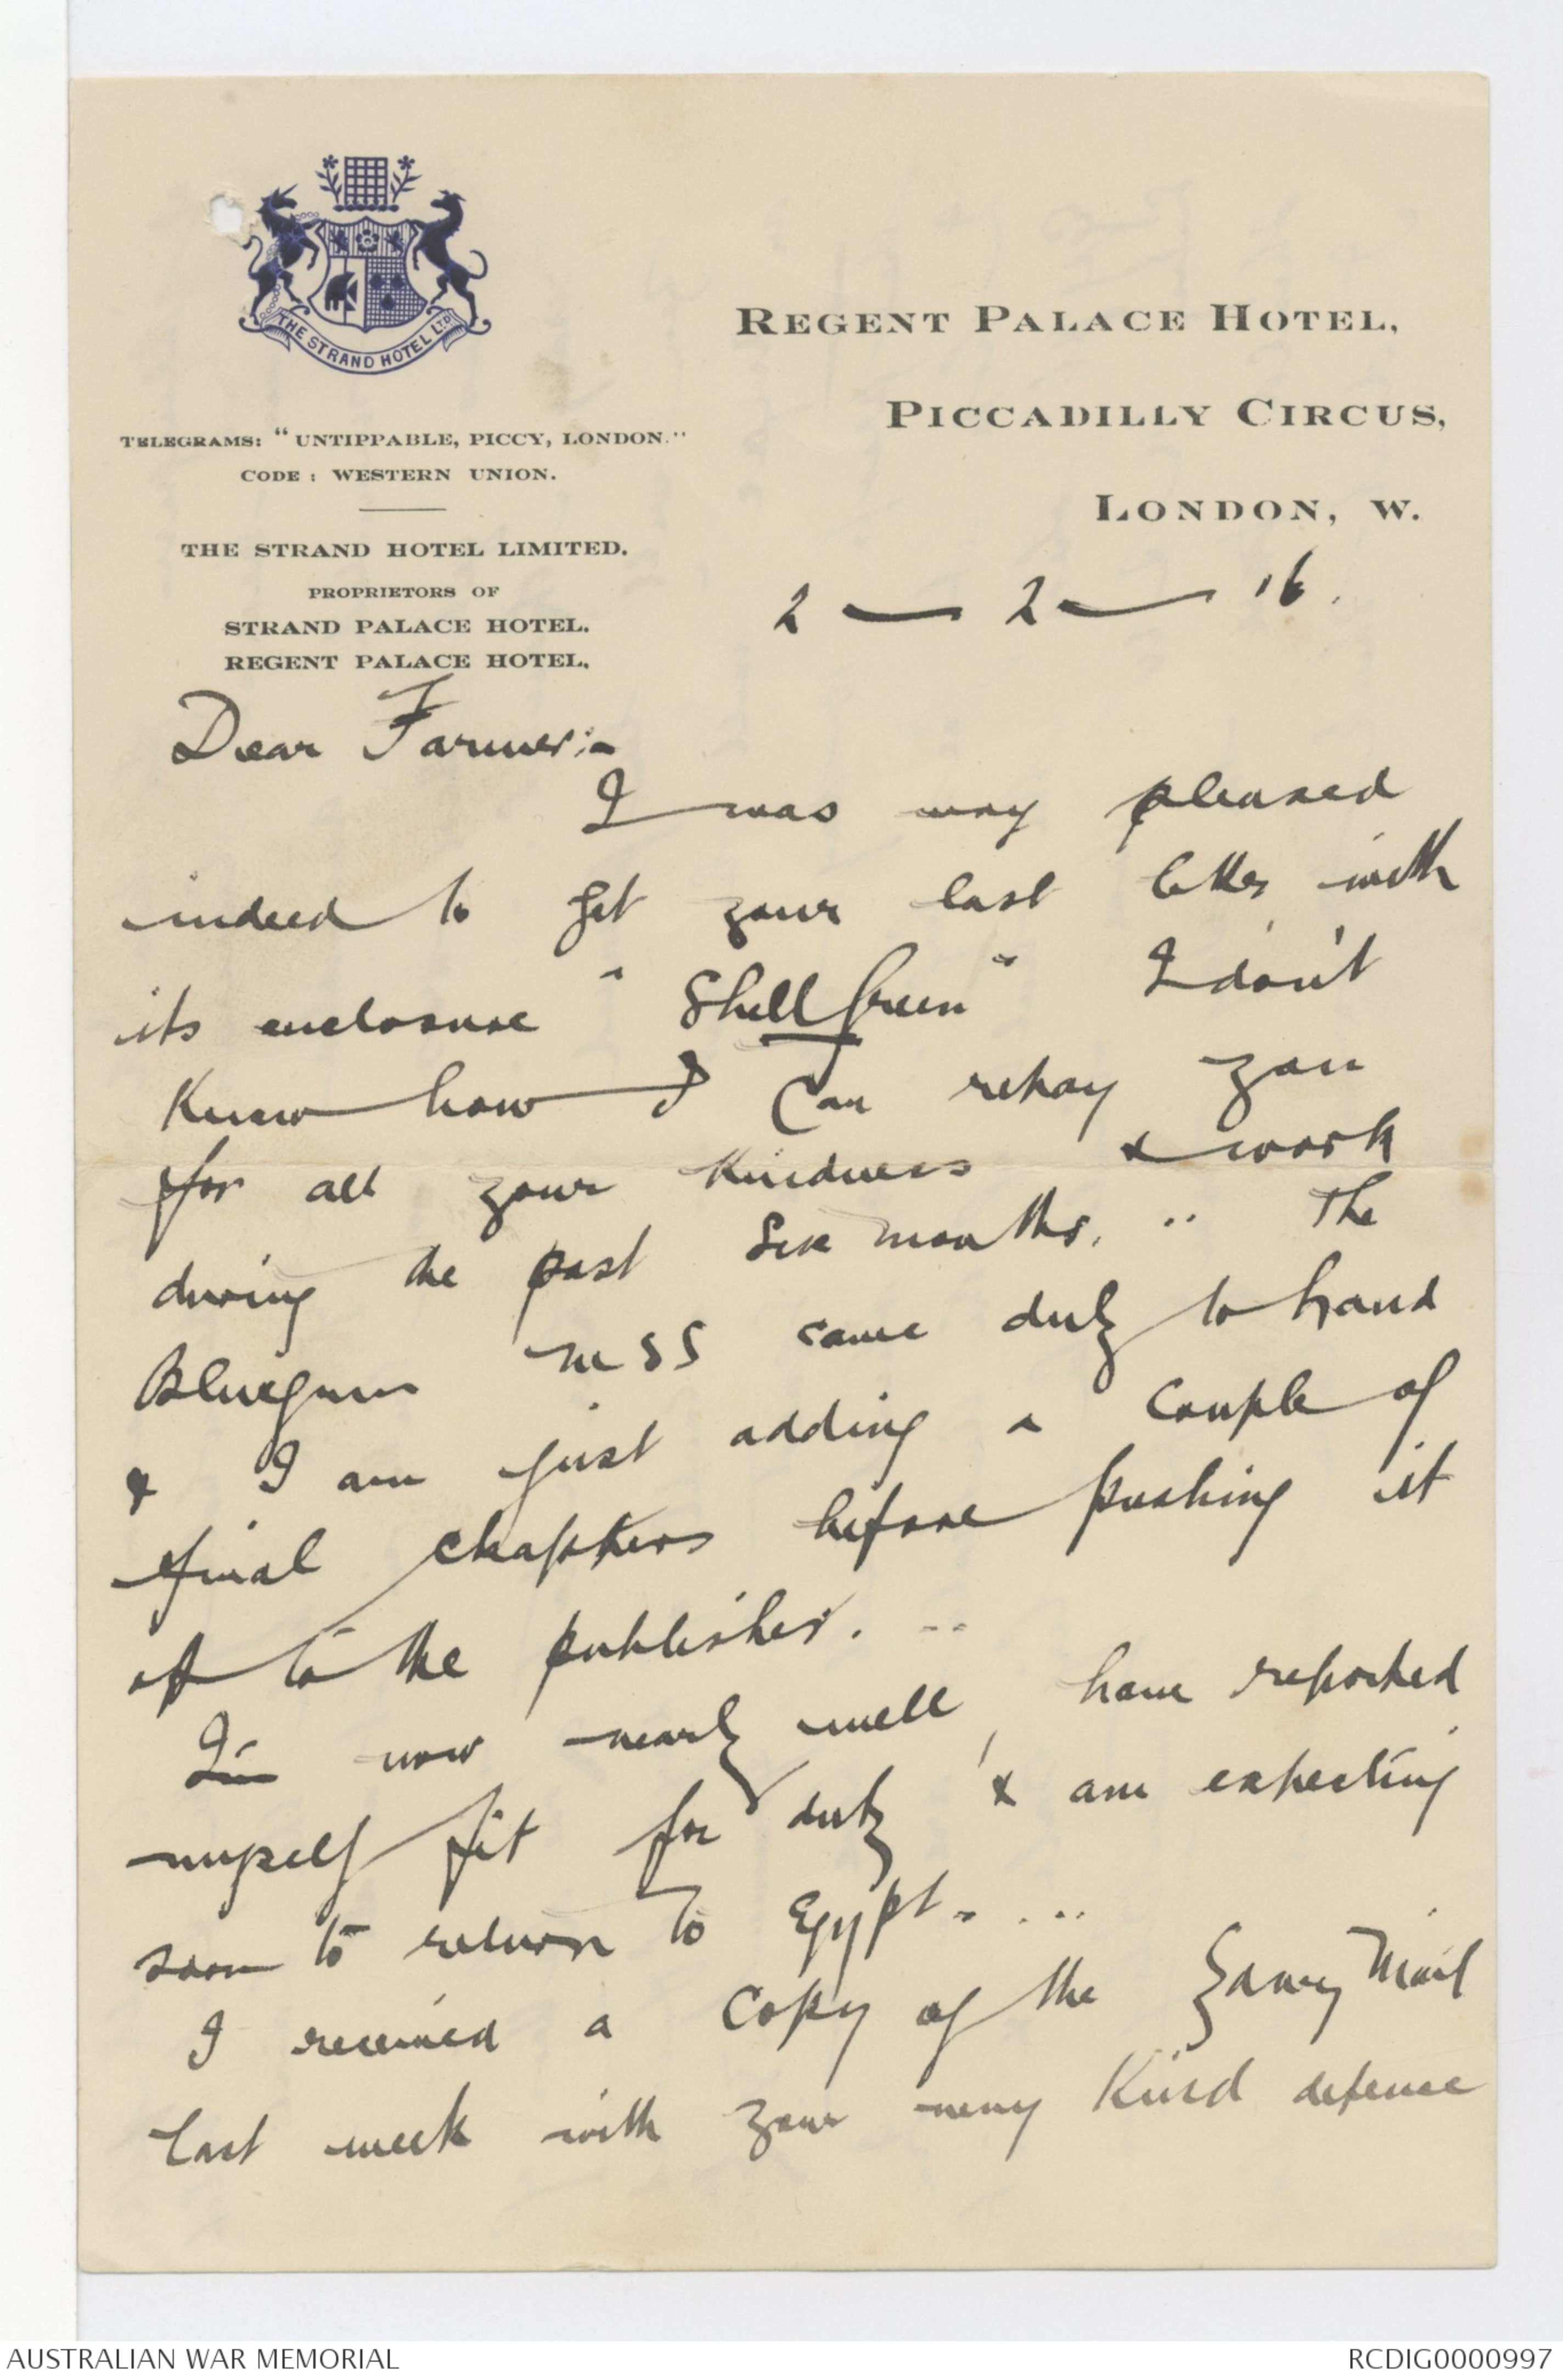 THE STRAND HOTEL LTD
TELEGRAMS: "UNTIPPABLE, PICCY, LONDON."
CODE: WESTERN UNION.
THE STRAND HOTEL LIMITED.
PROPRIETORS OF
STRAND PALACE HOTEL.
REGENT PALACE HOTEL.
REGENT PALACE HOTEL,
PICCADILLY CIRCUS,
LONDON, W.
2 — 2 — 16.
Dear Farmer:-
I was very pleased
indeed to get your last letter with
its enclosure "Shell Green" I don't
know how I can repay you
for all your kindness & work
during the past six months. .. The
Bluegum MSS came duly to hand
& I am just adding a couple of
final chapters before pushing it
off to the publisher. ..
I'm now nearly well, have reported
myself fit for duty & am expecting
soon to return to Egypt. . ..
I received a copy of the Mail
last week with your very kind defence
AUSTRALIAN WAR MEMORIAL
RCDIG0000997